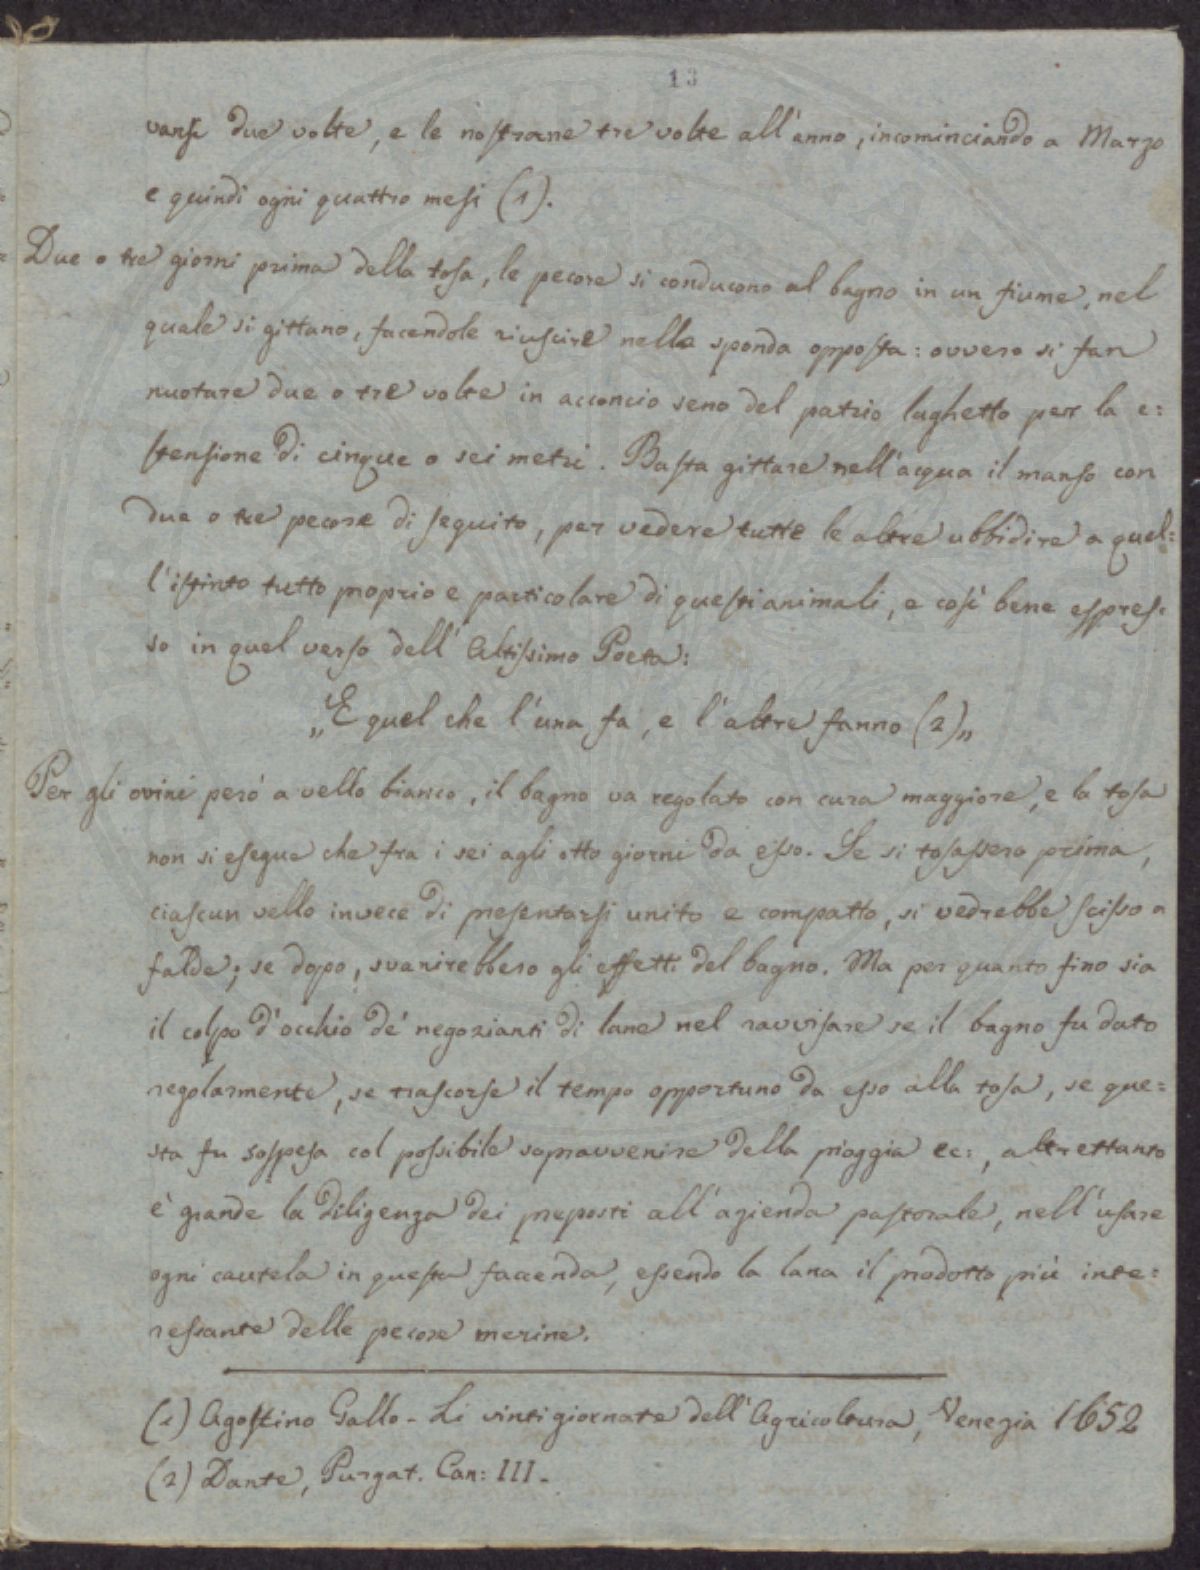 13
vansi due volte, e le nostrane tre volte all'anno, incominciando a Marzo
e quindi ogni quattro mesi (1).
Due o tre giorni prima della tosa, le pecore si conducono al bagno in un fiume, nel
quale si gittano, facendole riuscire nella sponda opposta: ovvero si fan
nuotare due o tre volte in acconcio seno del patrio laghetto per la e:
stensione di cinque o sei metri. Basta gittare nell'acqua il manso con
due o tre pecore di seguito, per vedere tutte le altre ubbidire a quel:
l'istinto tutto proprio e particolare di questi animali, e così bene espres:
so in quel verso dell'Altissimo Poeta:
„E quel che l'una fa, e l'altre fanno (2)„
Per gli ovini però a vello bianco, il bagno va regolato con cura maggiore, e la tosa
non si esegue che fra i sei agli otto giorni da esso. Se si tosassero prima,
ciascun vello invece di presentarsi unito e compatto, si vedrebbe scisso a
falde; se dopo, svanirebbero gli effetti del bagno. Ma per quanto fino sia
il colpo d'occhio de' negozianti di lane nel ravvisare se il bagno fu dato
regolarmente, se trascorse il tempo opportuno da esso alla tosa, se que:
sta fu sospesa col possibile sopravvenire della pioggia ec:, altrettanto
è grande la diligenza dei preposti all'azienda pastorale, nell'usare
ogni cautela in questa faccenda, essendo la lana il prodotto più inte:
ressante delle pecore merine.
(1) Agostino Gallo - Li vinti giornate dell'Agricoltura, Venezia 1652
(2) Dante, Purgat. Can: III.